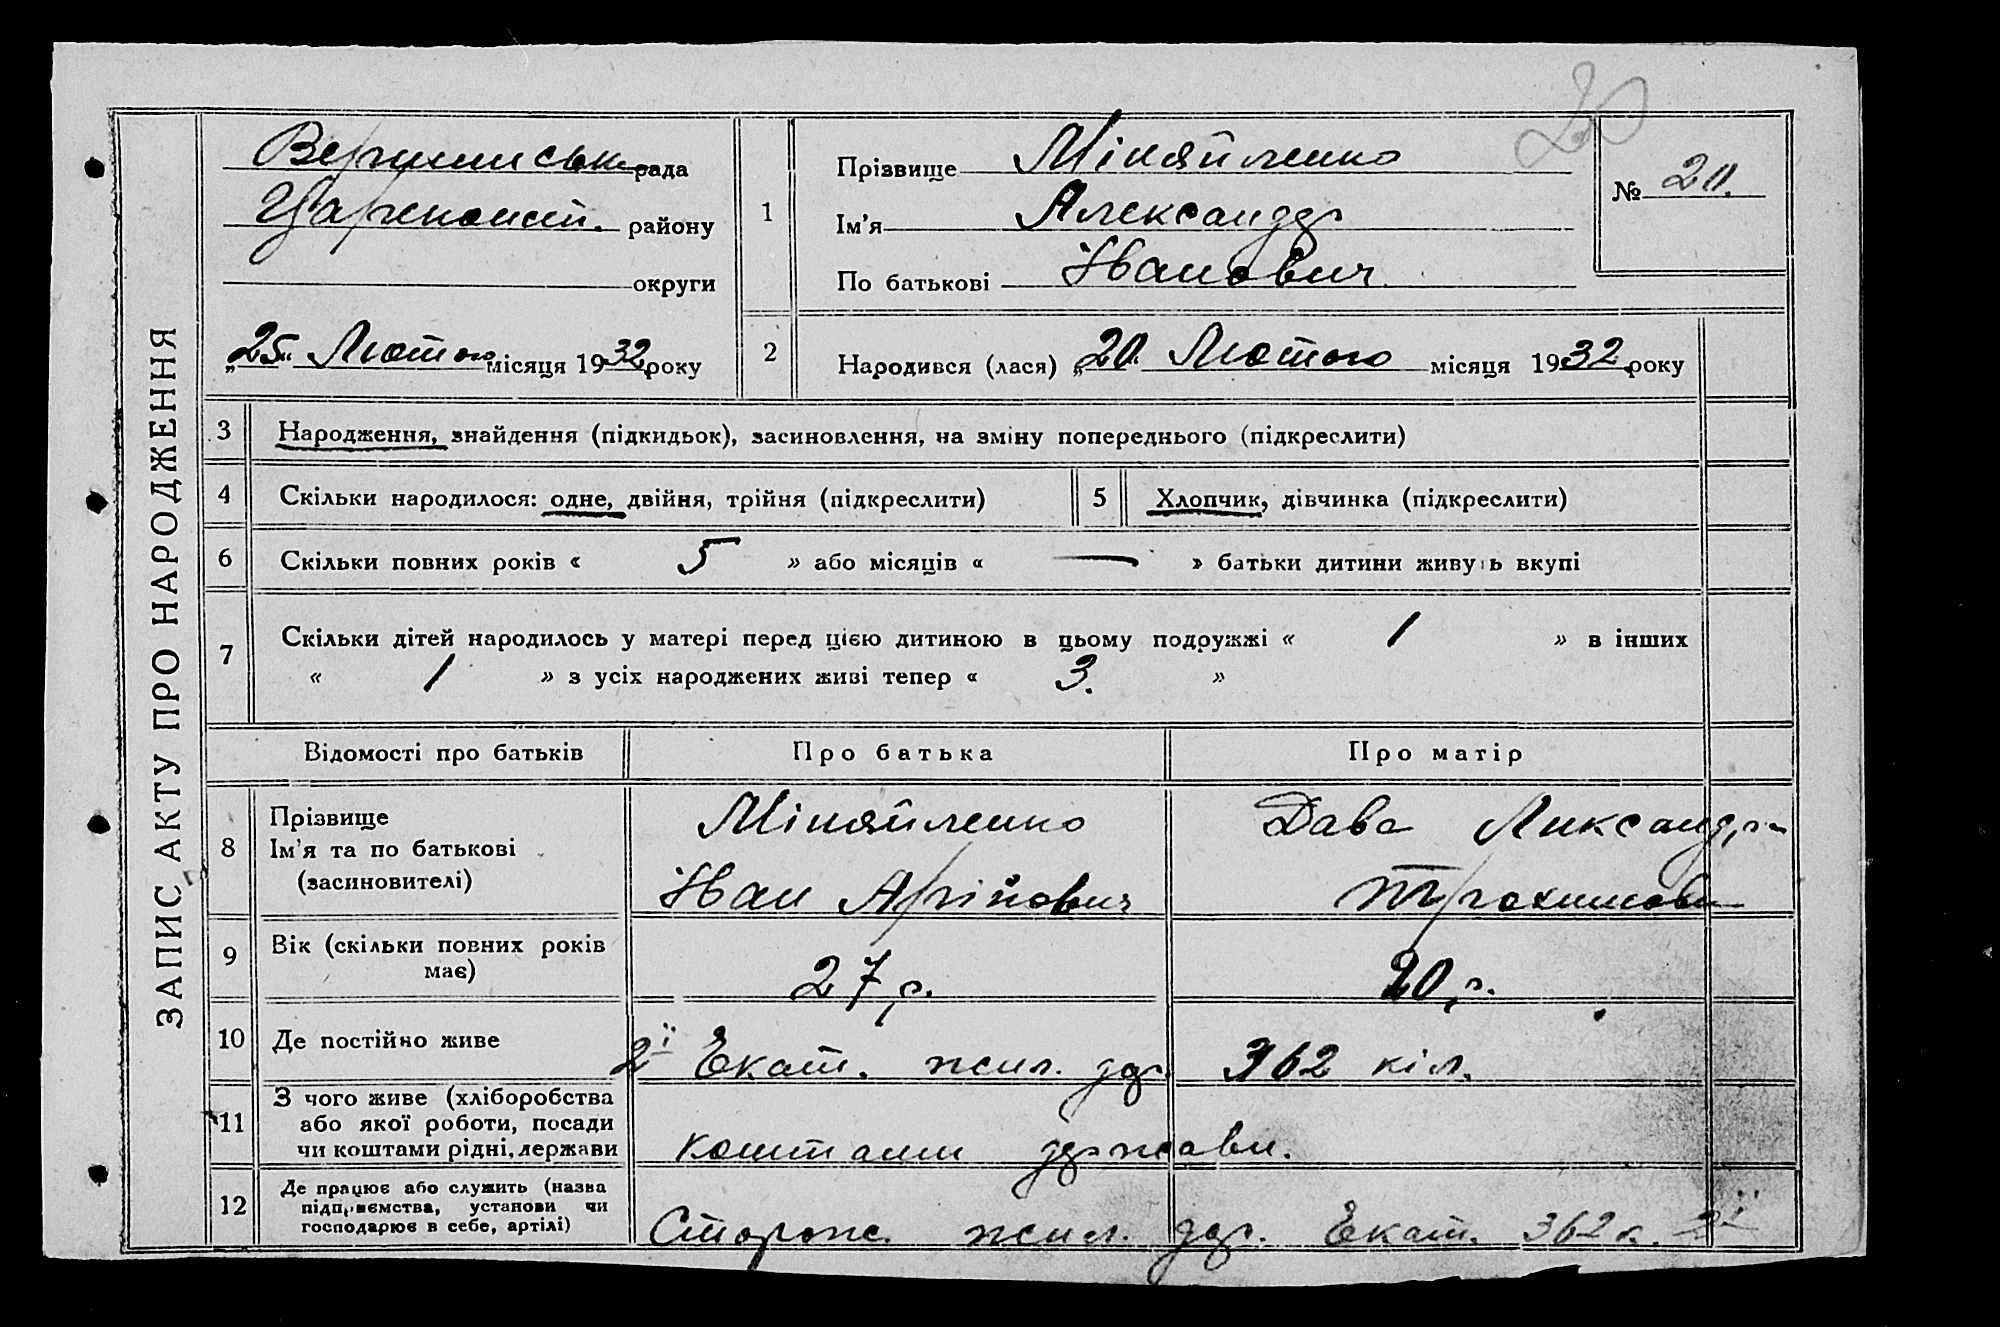 20
ЗАПИС АКТУ ПРО НАРОДЖЕННЯ
рада
району
округи
„25" Лютого місяця 1932 року
1
Прізвище Міняйленко
Ім'я Александр
По батькові Іванович
№ 20.
2
Народився (лася) „20" Лютого місяця 1932 року
3 Народження, знайдення (підкидьок), засиновлення, на зміну попереднього (підкреслити)
4 Скільки народилося: одне, двійня, трійня (підкреслити)
5 Хлопчик, дівчинка (підкреслити)
6 Скільки повних років « 5 » або місяців « — » батьки дитини живуть вкупі
7 Скільки дітей народилось у матері перед цією дитиною в цьому подружжі « 1 » в інших
« 1 » з усіх народжених живі тепер « 3. »
Відомості про батьків Про батька Про матір
8 Прізвище
Ім'я та по батькові
(засиновителі)
Міняйленко
Іван
Дава
9 Вік (скільки повних років
має)
27 р. 20 р.
10 Де постійно живе
2ї Екат. жил. др. 362 кіл.
11 З чого живе (хліборобства
або якої роботи, посади
чи коштами рідні, держави
коштами держави.
12 Де працює або служить (назва
підприємства, установи чи
господарює в себе, артілі)
Сторож. жил. др. Екат. 362 к. 2ї